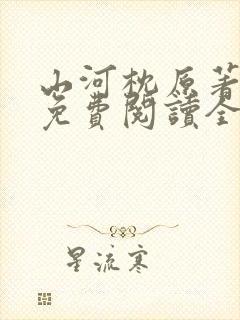 山河枕原著
免費閱讀全
星流寒